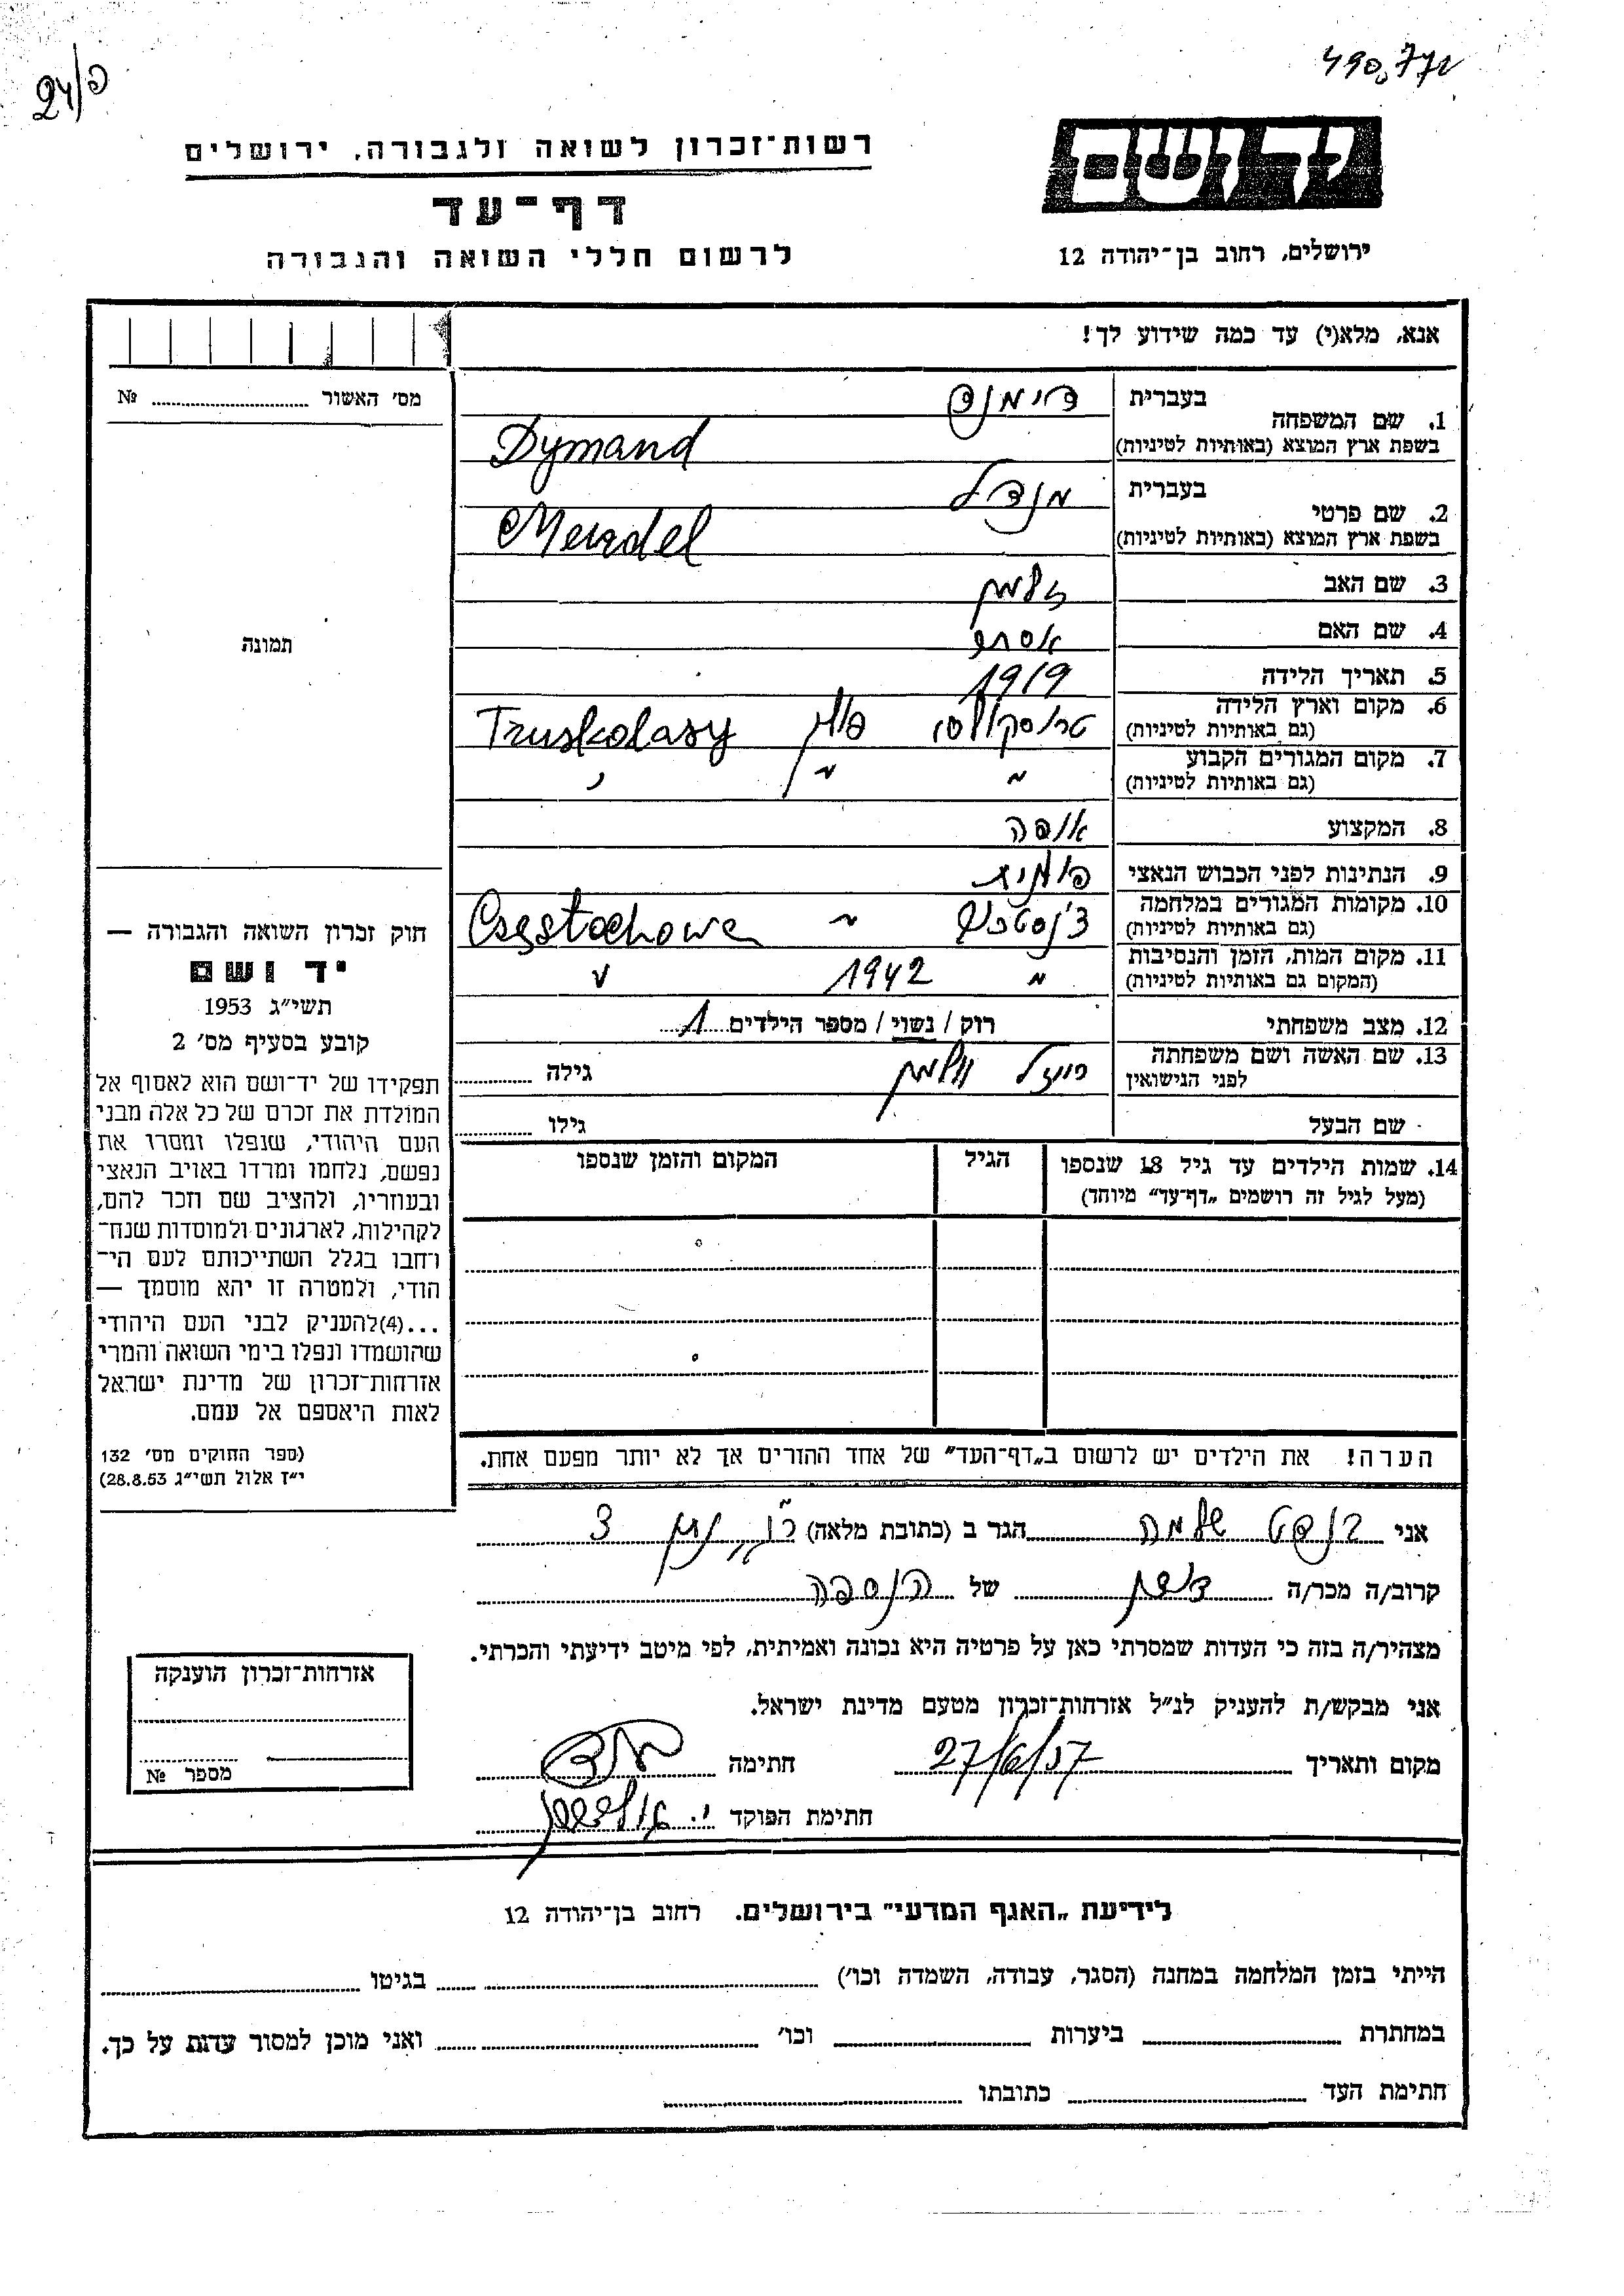 490,772
24/פ
יד ושם
רשות־זכרון לשואה ולגבורה, ירושלים
דף־עד
ירושלים, רחוב בן־יהודה 12
לרשום חללי השואה והגבורה
אנא, מלא(י) עד כמה שידוע לך!
מס׳ האשור ........ №
תמונה
1. שם המשפחה
בעברית דימנד
בשפת ארץ המוצא (באותיות לטיניות) Dymand
2. שם פרטי
בעברית מנדל
בשפת ארץ המוצא (באותיות לטיניות) Mendel
3. שם האב זלמן
4. שם האם אסתר
5. תאריך הלידה 1919
6. מקום וארץ הלידה
(גם באותיות לטיניות) טרוסקולסי פולין Truskolasy
7. מקום המגורים הקבוע
(גם באותיות לטיניות) " " "
8. המקצוע אופה
9. הנתינות לפני הכבוש הנאצי פולנית
10. מקומות המגורים במלחמה
(גם באותיות לטיניות) צ'נסטכוב " Częstochowa
11. מקום המות, הזמן והנסיבות
(המקום גם באותיות לטיניות) " 1942 "
12. מצב משפחתי רוק / נשוי / מספר הילדים 1
13. שם האשה ושם משפחתה
לפני הנישואין גילה ........
שם הבעל גילו ........
14. שמות הילדים עד גיל 18 שנספו
(מעל לגיל זה רושמים „דף־עד״ מיוחד)
הגיל
המקום והזמן שנספו
הערה! את הילדים יש לרשום ב„דף־העד״ של אחד ההורים אך לא יותר מפעם אחת.
חוק זכרון השואה והגבורה —
יד ושם
תשי״ג 1953
קובע בסעיף מס׳ 2
תפקידו של יד־ושם הוא לאסוף אל
המולדת את זכרם של כל אלה מבני
העם היהודי, שנפלו ומסרו את
נפשם, נלחמו ומרדו באויב הנאצי
ובעוזריו, ולהציב שם וזכר להם,
לקהילות, לארגונים ולמוסדות שנח־
רחבו בגלל השתייכותם לעם הי־
הודי, ולמטרה זו יהא מוסמך —
...(4)להעניק לבני העם היהודי
שהושמדו ונפלו בימי השואה והמרי
אזרחות־זכרון של מדינת ישראל
לאות היאספם אל עמם.
(ספר החוקים מס׳ 132
י״ז אלול תשי״ג 28.8.53)
אני שלמה הגר ב (כתובת מלאה)
קרוב/ה מכר/ה של הנספה
מצהיר/ה בזה כי העדות שמסרתי כאן על פרטיה היא נכונה ואמיתית, לפי מיטב ידיעתי והכרתי.
אני מבקש/ת להעניק לנ״ל אזרחות־זכרון מטעם מדינת ישראל.
מקום ותאריך 27/6/57 חתימה
חתימת הפוקד
אזרחות־זכרון הוענקה
מספר №
לידיעת „האגף המדעי״ בירושלים. רחוב בן־יהודה 12
הייתי בזמן המלחמה במחנה (הסגר, עבודה, השמדה וכו׳) ........ בגיטו ........
במחתרת ........ ביערות ........ וכו׳ ........ ואני מוכן למסור עדות על כך.
חתימת העד ........ כתובתו ........